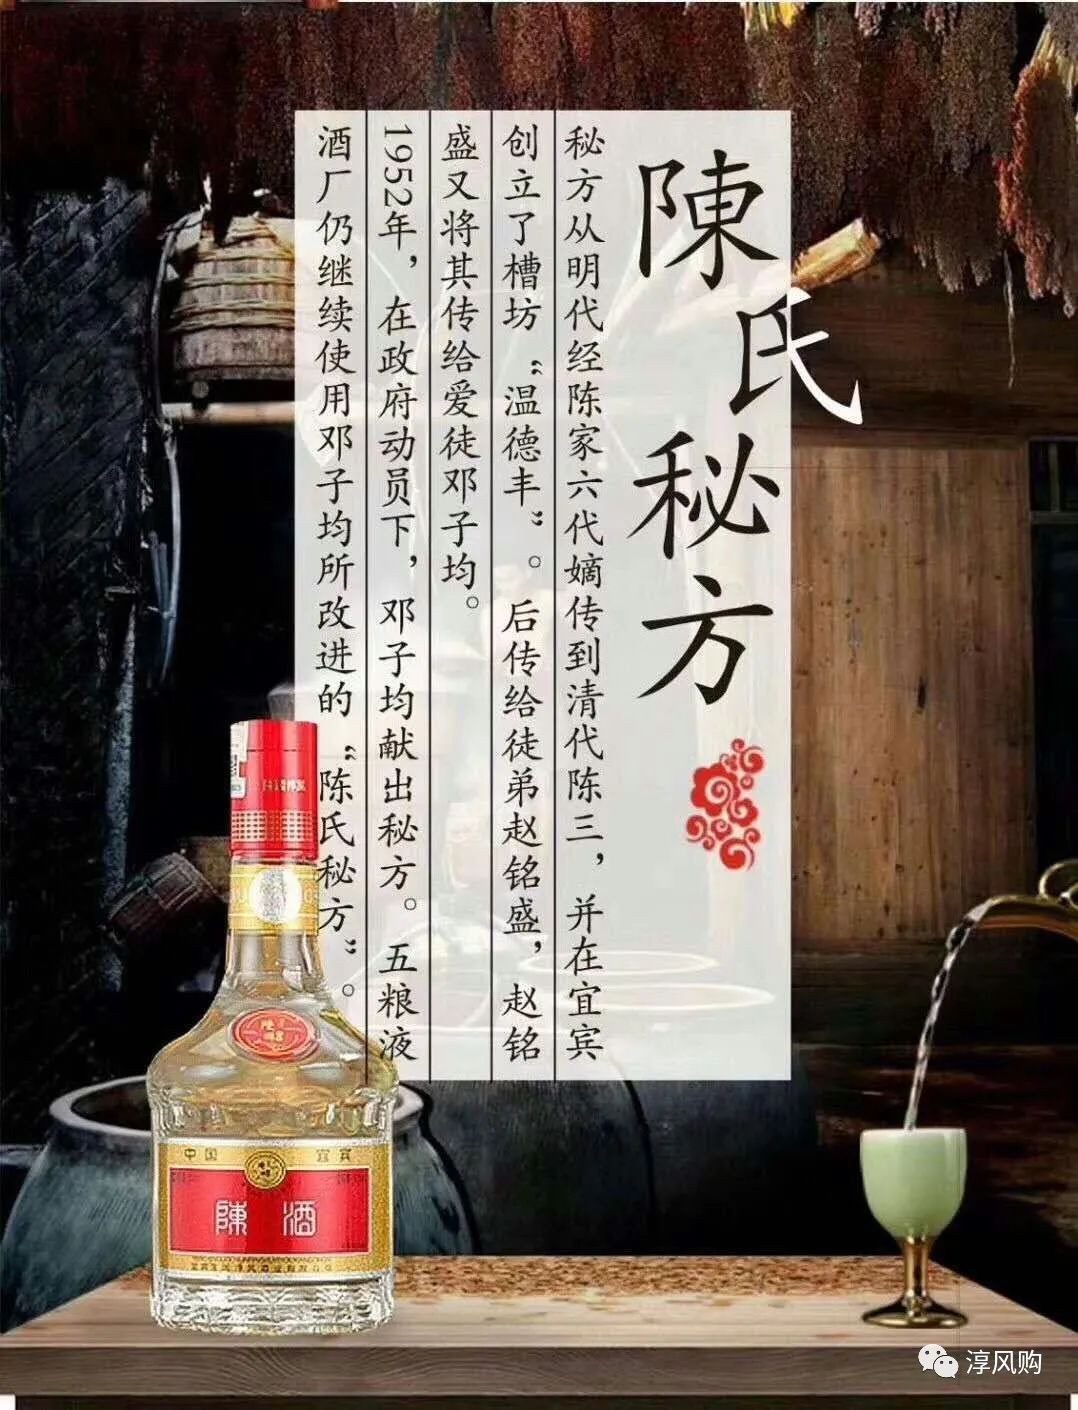 陳氏秘方
秘方从明代经陈家六代嫡传到清代陈三，并在宜宾
创立了槽坊“温德丰”。后传给徒弟赵铭盛，赵铭
盛又将其传给爱徒邓子均。
1952年，在政府动员下，邓子均献出秘方。五粮液
酒厂仍继续使用邓子均所改进的“陈氏秘方”。
中国 宜宾
陳酒
淳风购